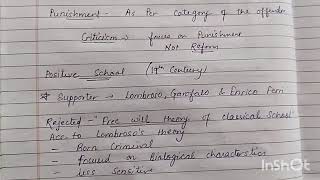 Punishment - As Per Category of the offender
Criticism → focus on Punishment
Not Reform
Positive School (19th Century)
* Supporter → Lombroso, Garofalo & Enrico Ferri
Rejected - Free will theory of classical School
Acc to Lombroso's theory
- Born Criminal
- focused on Biological characterstics
- less Sensitive
InShOt